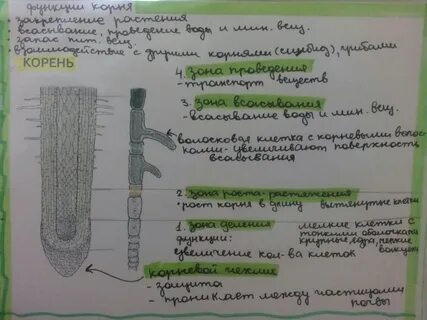 функции корня
- закрепление растения
- всасывание, проведение воды и мин. вещ.
- запас пит. вещ.
- взаимодействие с другими корнями (симбиоз), грибами
КОРЕНЬ
4. зона проведения
- транспорт веществ
3. зона всасывания
- всасывание воды и мин. вещ.
волосковая клетка с корневыми волос-
ками - увеличивают поверхность
всасывания
2. зона роста-растяжения
• рост корня в длину вытянутые клетки
1. зона деления мелкие клетки с
тонкими оболочками
функции: крупные ядра, мелкие
вакуоли
увеличение кол-ва клеток
корневой чехлик
- защита
- проникает между частицами
почвы